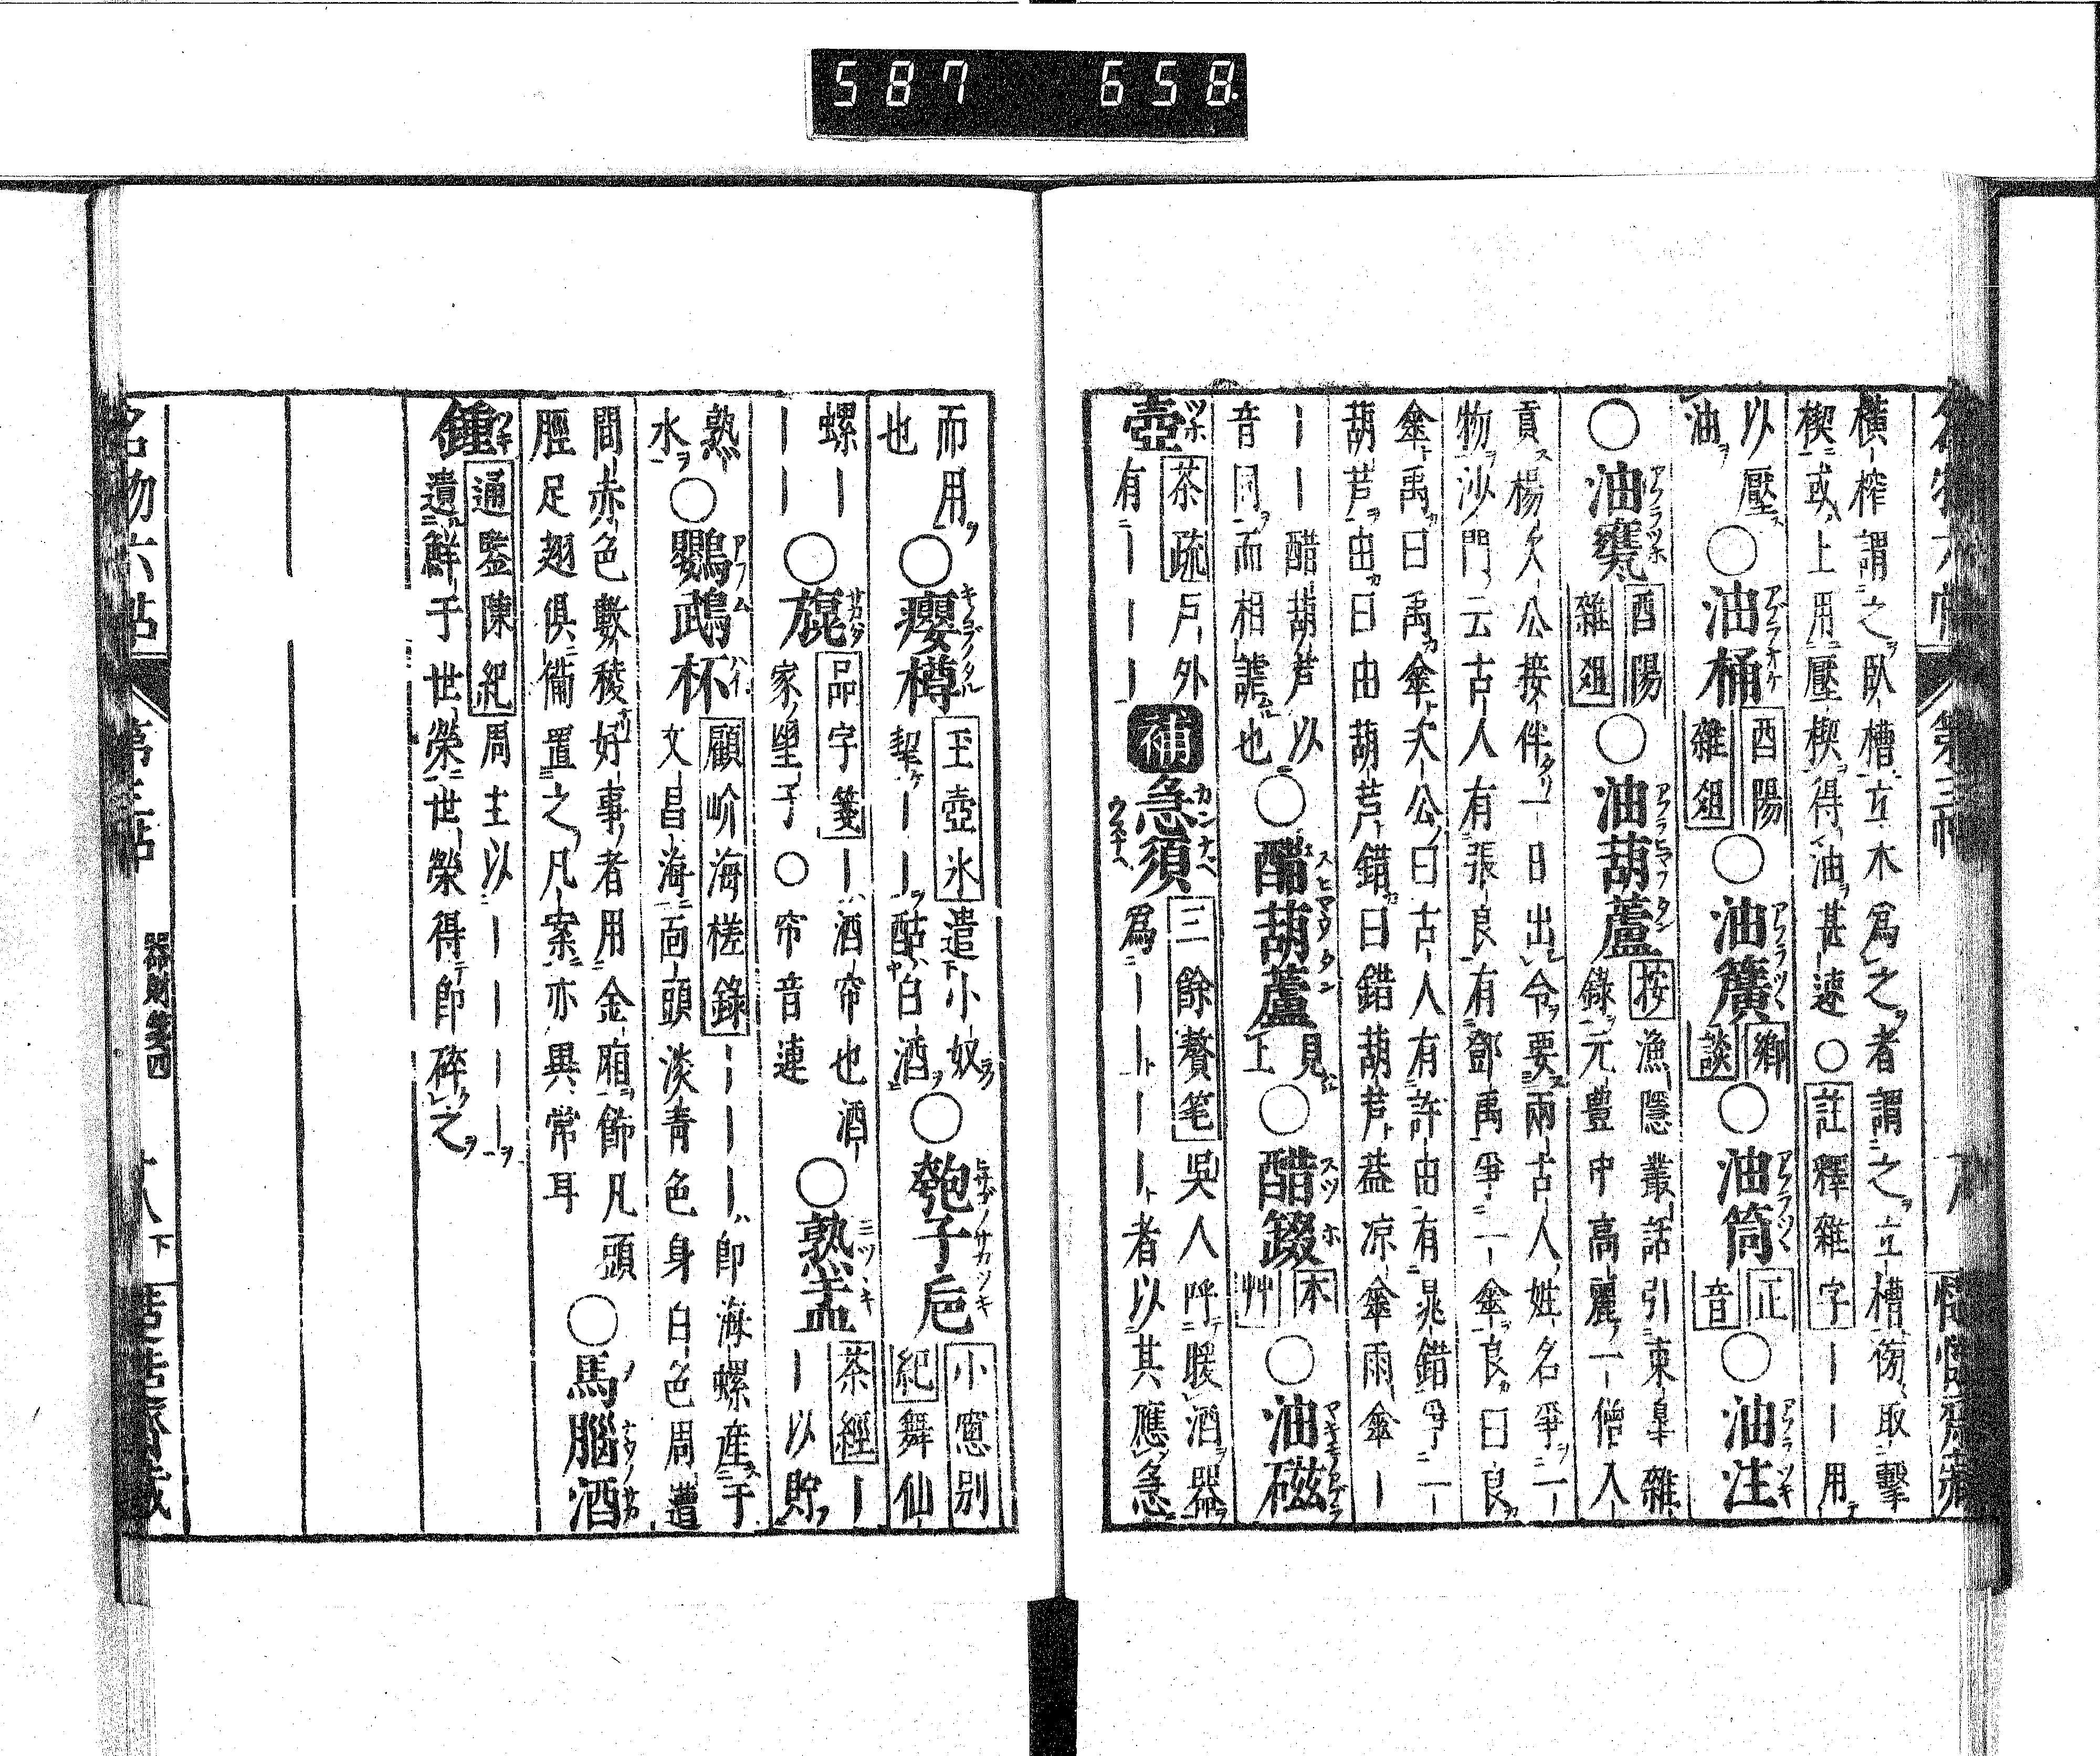 587 658
第三帖
横榨謂之臥槽立木爲之者謂之立槽傍取擊
楔或上用壓楔得油甚速○註釋雜字||用
以壓
油
○油桶
酉陽
雜俎
○油籚
鄉
談
○油筒
正
音
○油注
○油甕
酉陽
雜俎
○油葫蘆
按漁隱叢話引東皐雜
錄元豊中高麗一僧入
貢楊次公接伴一日出令要兩古人姓名爭一
物沙門云古人有張良有鄧禹爭一傘良曰良
傘禹曰禹傘次公曰古人有許由有晁錯爭一
葫芦由曰由葫芦錯曰錯葫芦葢凉傘雨傘|
||醋葫芦以
音同而相謔也
○醋葫蘆
見
上
○醋錣
本
艸
○油磁
壺
茶疏戸外
有|||
補
急須
三餘贅笔吳人呼暖酒器
爲||||者以其應急
而用
也
○癭樽
玉壺氷遣小奴
挈||酤白酒
○匏子巵
小窓別
紀舞仙
螺|
||
○旗
品字箋|酒帘也酒
家望子○帘音連
○熟盂
茶經|
|以貯
熟
水
○鸚鵡杯
顧岕海槎錄|||即海螺産于
文昌海面頭淡青色身白色周遭
間赤色數稜好事者用金廂飾凡頭
脛足翅俱備置之凡案亦異常耳
○馬腦酒
鍾
通鑑陳紀周主以||||
遺鮮于世榮世榮得卽碎之
名物六帖
第三帖
器財箋四
十八下